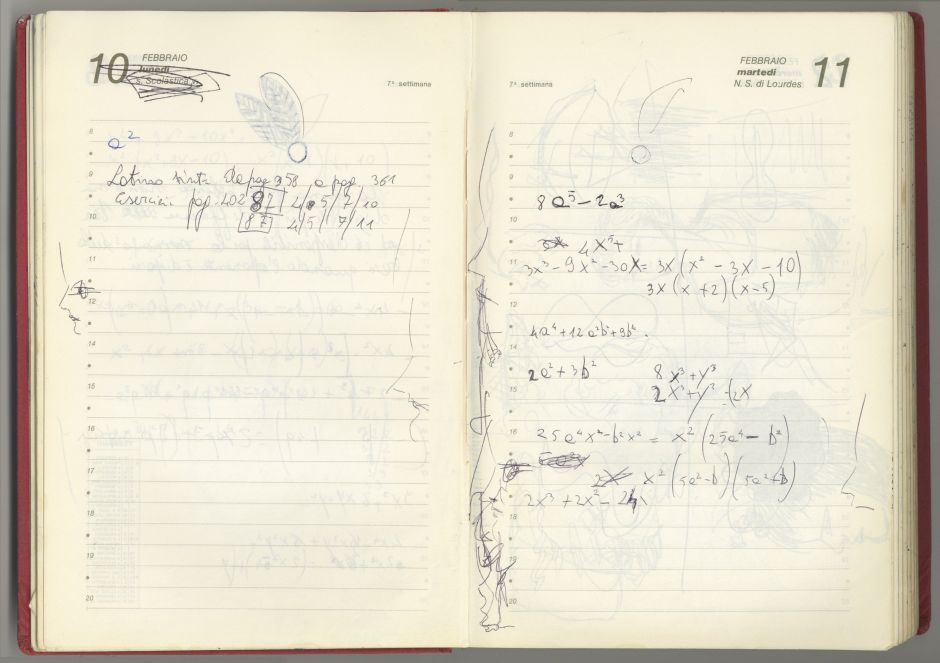 10
FEBBRAIO
lunedì
s. Scolastica
7ª settimana
8
a²
9
pag. 361
pag. 202 87 4/5/7/10
10
87 4/5/7/11
11
12
13
14
15
16
17
18
19
20
7ª settimana
FEBBRAIO
martedì
N. S. di Lourdes
11
8
9
8a⁵ – 2a³
10
4x⁵+
11
3x³ – 9x² – 30x = 3x(x² – 3x – 10)
3x(x + 2)(x – 5)
12
13
4a⁴ + 12a²b² + 9b²
14
2a² + 3b²
8x³ + y³
15
2x³ + y³ = (2x
16
25a⁴x² – b²x² = x²(25a⁴ – b²)
17
2x x²(5a² – b)(5a² + b)
2x³ + 2x² – 24x
18
19
20